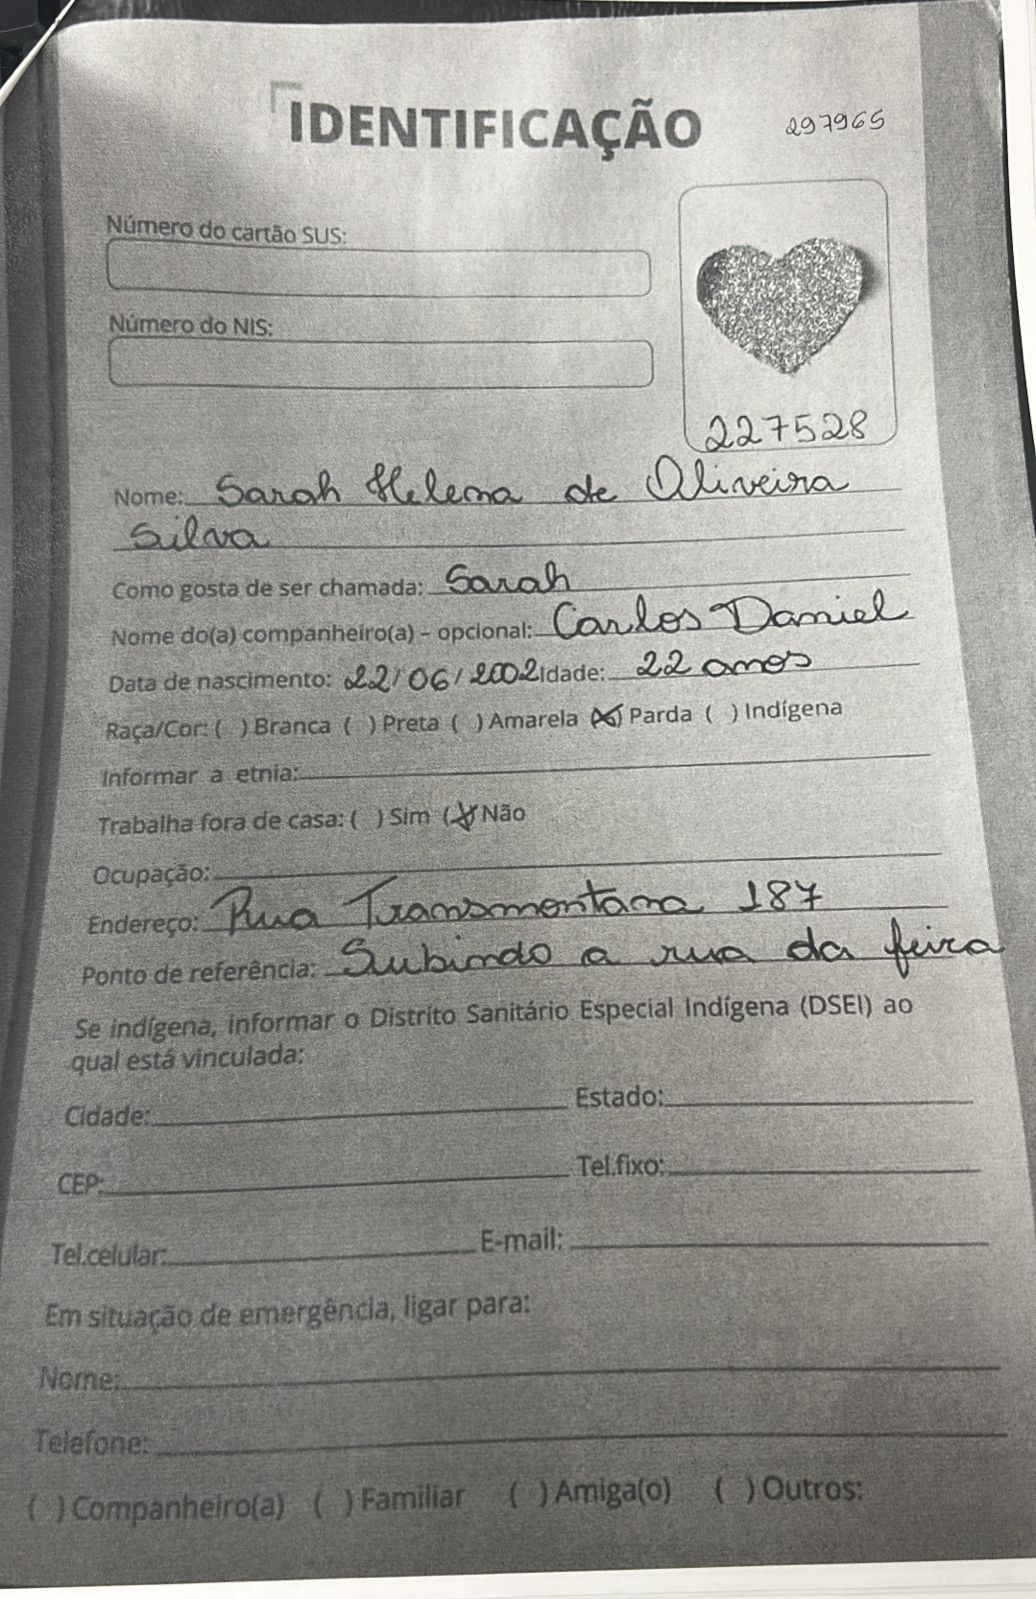 IDENTIFICAÇÃO 297965
Número do cartão SUS:
Número do NIS:
227528
Nome: Sarah Helena de Oliveira
Silva
Como gosta de ser chamada: Sarah
Nome do(a) companheiro(a) - opcional: Carlos Daniel
Data de nascimento: 22/06/2002 Idade: 22 anos
Raça/Cor: ( ) Branca ( ) Preta ( ) Amarela (X) Parda ( ) Indígena
Informar a etnia:
Trabalha fora de casa: ( ) Sim (X) Não
Ocupação:
Endereço: Rua Transmontana 187
Ponto de referência: Subindo a rua da feira
Se indígena, informar o Distrito Sanitário Especial Indígena (DSEI) ao
qual está vinculada:
Cidade: Estado:
CEP: Tel.fixo:
Tel.celular: E-mail:
Em situação de emergência, ligar para:
Nome:
Telefone:
( ) Companheiro(a) ( ) Familiar ( ) Amiga(o) ( ) Outros: